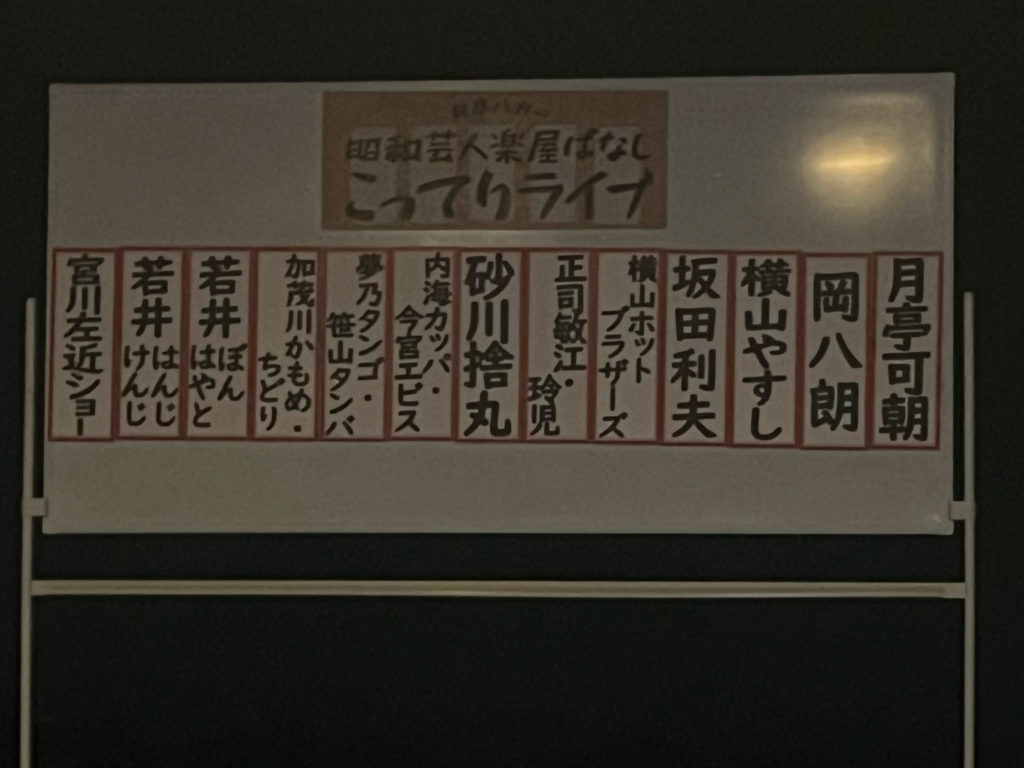 昭和芸人楽屋ばなし
こってりライブ
月亭可朝
岡八朗
横山やすし
坂田利夫
横山ホット
ブラザーズ
正司敏江・
玲児
砂川捨丸
内海カッパ・
今宮エビス
夢乃タンゴ・
笹山タンバ
加茂川かもめ・
ちどり
若井ぼん
はやと
若井はんじ
けんじ
宮川左近ショー